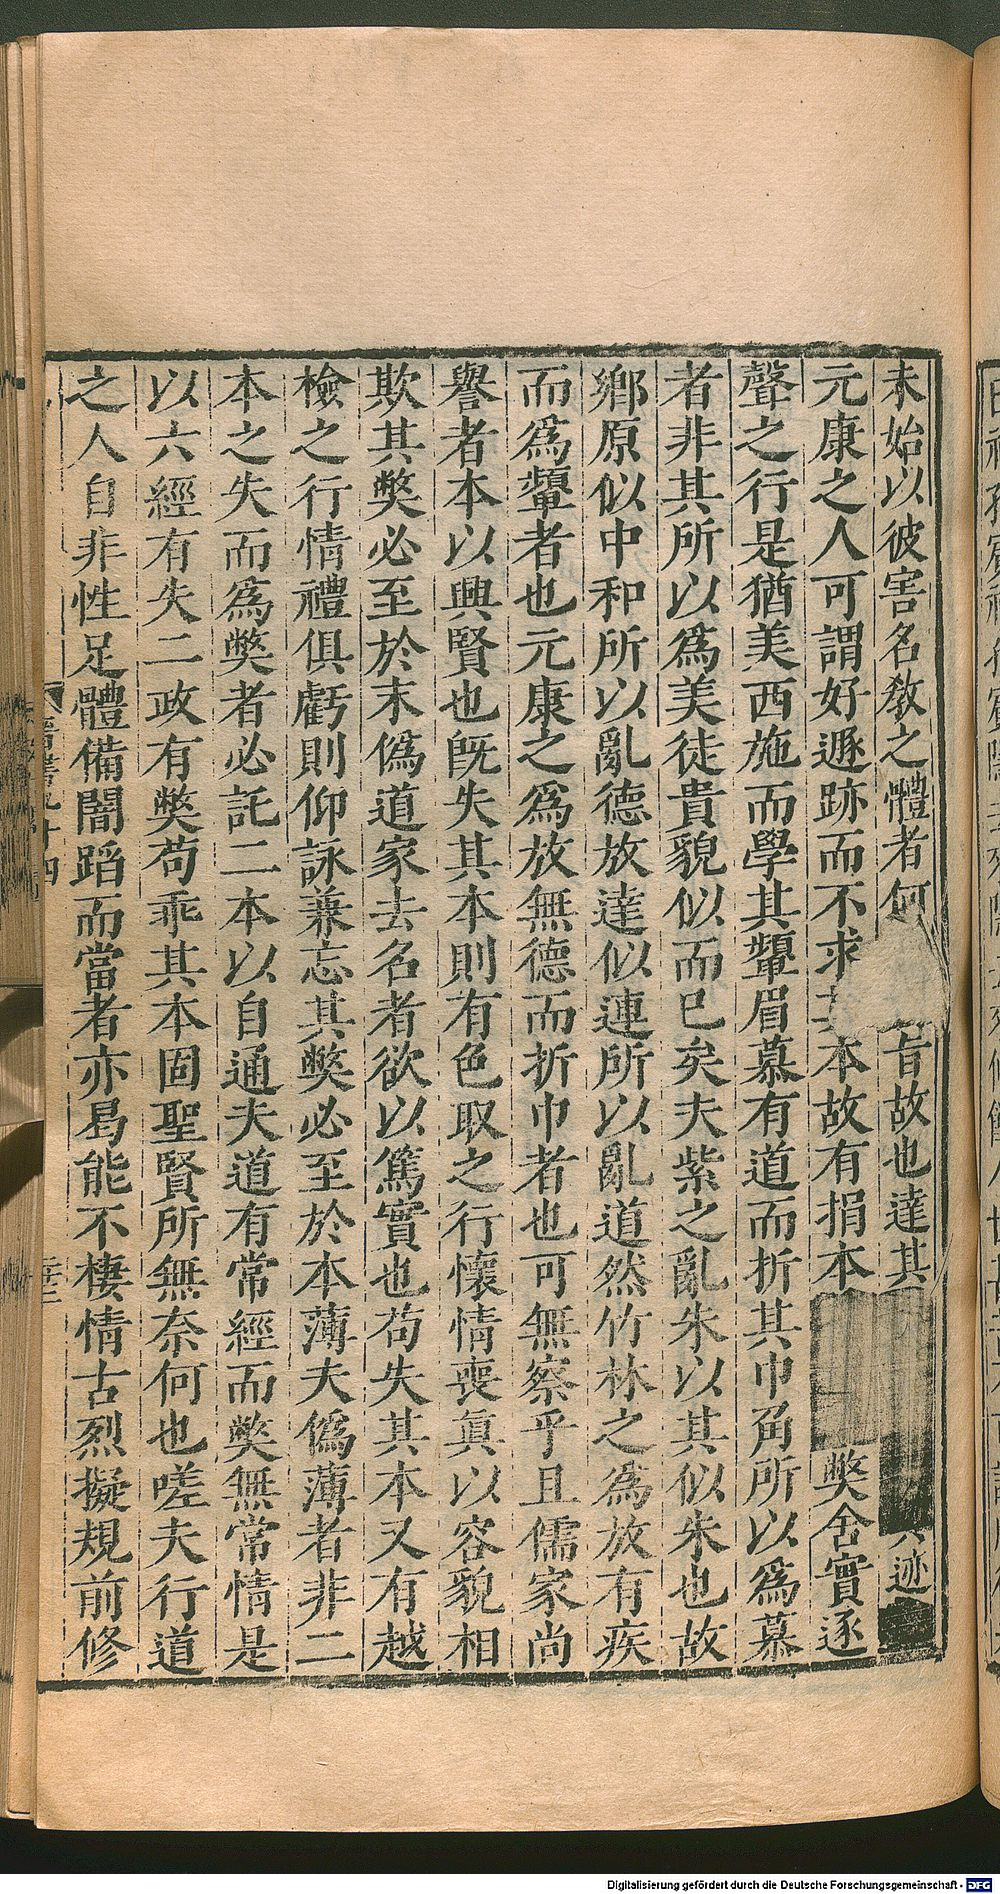 未始以彼害名教之體者何旨故也達其迹
元康之人可謂好遯跡而不求其本故有捐本弊舍實逐
聲之行是猶美西施而學其顰眉慕有道而折其巾角所以爲慕
者非其所以爲美徒貴貌似而已矣夫紫之亂朱以其似朱也故
鄉原似中和所以亂德放達似連所以亂道然竹林之爲放有疾
而爲顰者也元康之爲放無德而折巾者也可無察乎且儒家尚
譽者本以興賢也旣失其本則有色取之行懷情喪眞以容貌相
欺其弊必至於末僞道家去名者欲以篤實也苟失其本又有越
檢之行情禮俱虧則仰詠兼忘其弊必至於本薄夫僞薄者非二
本之失而爲弊者必託二本以自通夫道有常經而弊無常情是
以六經有失二政有弊苟乖其本固聖賢所無奈何也嗟夫行道
之人自非性足體備闇蹈而當者亦曷能不棲情古烈擬規前修
晉書九十四
Digitalisierung gefördert durch die Deutsche Forschungsgemeinschaft - DFG